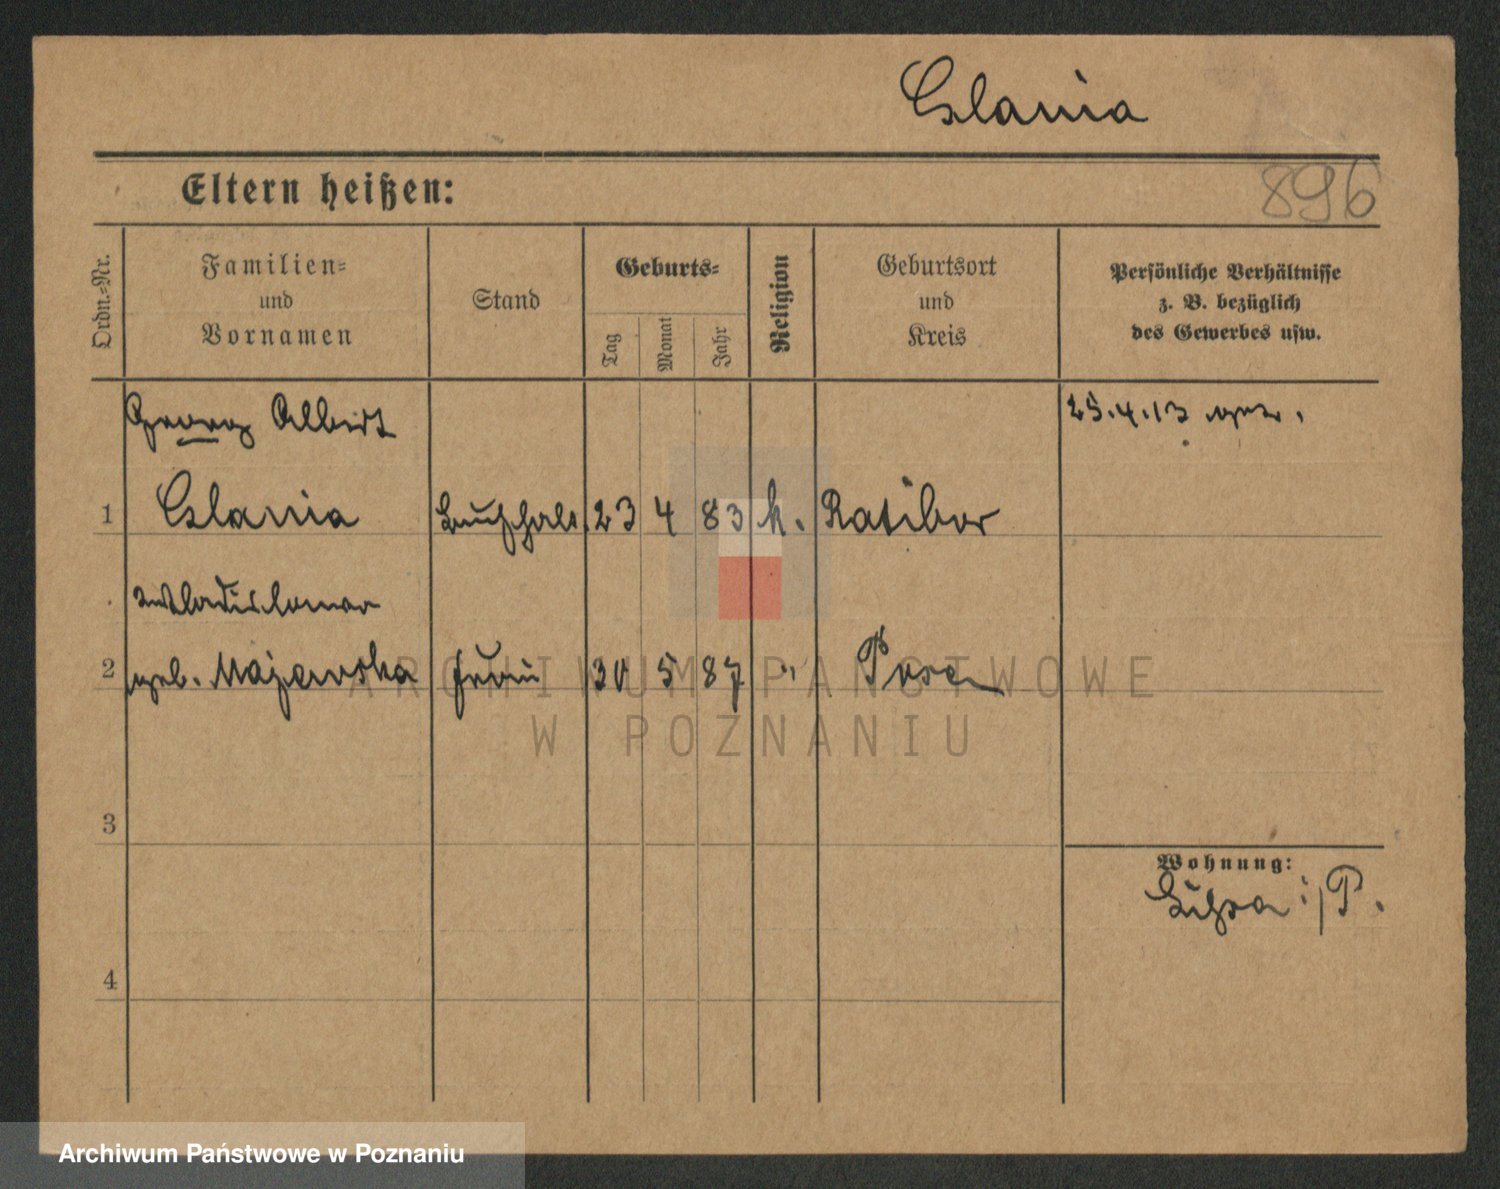 Cslania
896
Eltern heißen:
Ordn.-Nr.
Familien-
und
Vornamen
Stand
Geburts-
Tag
Monat
Jahr
Religion
Geburtsort
und
Kreis
Persönliche Verhältnisse
z. B. bezüglich
des Gewerbes usw.
Georg Albert
25.4.13
1 Cslania Buchhalt. 23 4 83 k. Ratibor
Wladislawa
2 geb. Majewska Frau 30 5 87 " Posen
3
Wohnung:
Lissa i/P.
4
ARCHIWUM PAŃSTWOWE
W POZNANIU
Archiwum Państwowe w Poznaniu